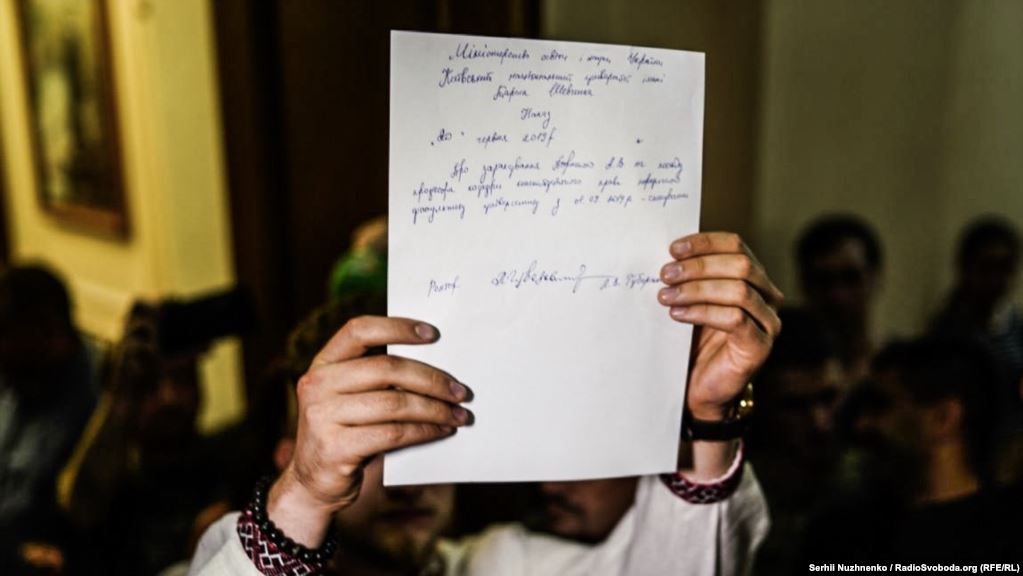 Міністерство освіти і науки України
Київський національний університет імені
Тараса Шевченка
Наказ
„20" червня 2019 р
Про зарахування А.В на посаду
професора кафедри конституційного права юридичного
факультету університету з 01.09.2019р - скасувати
Ректор Л.В. Губерський
Serhii Nuzhnenko / RadioSvoboda.org (RFE/RL)